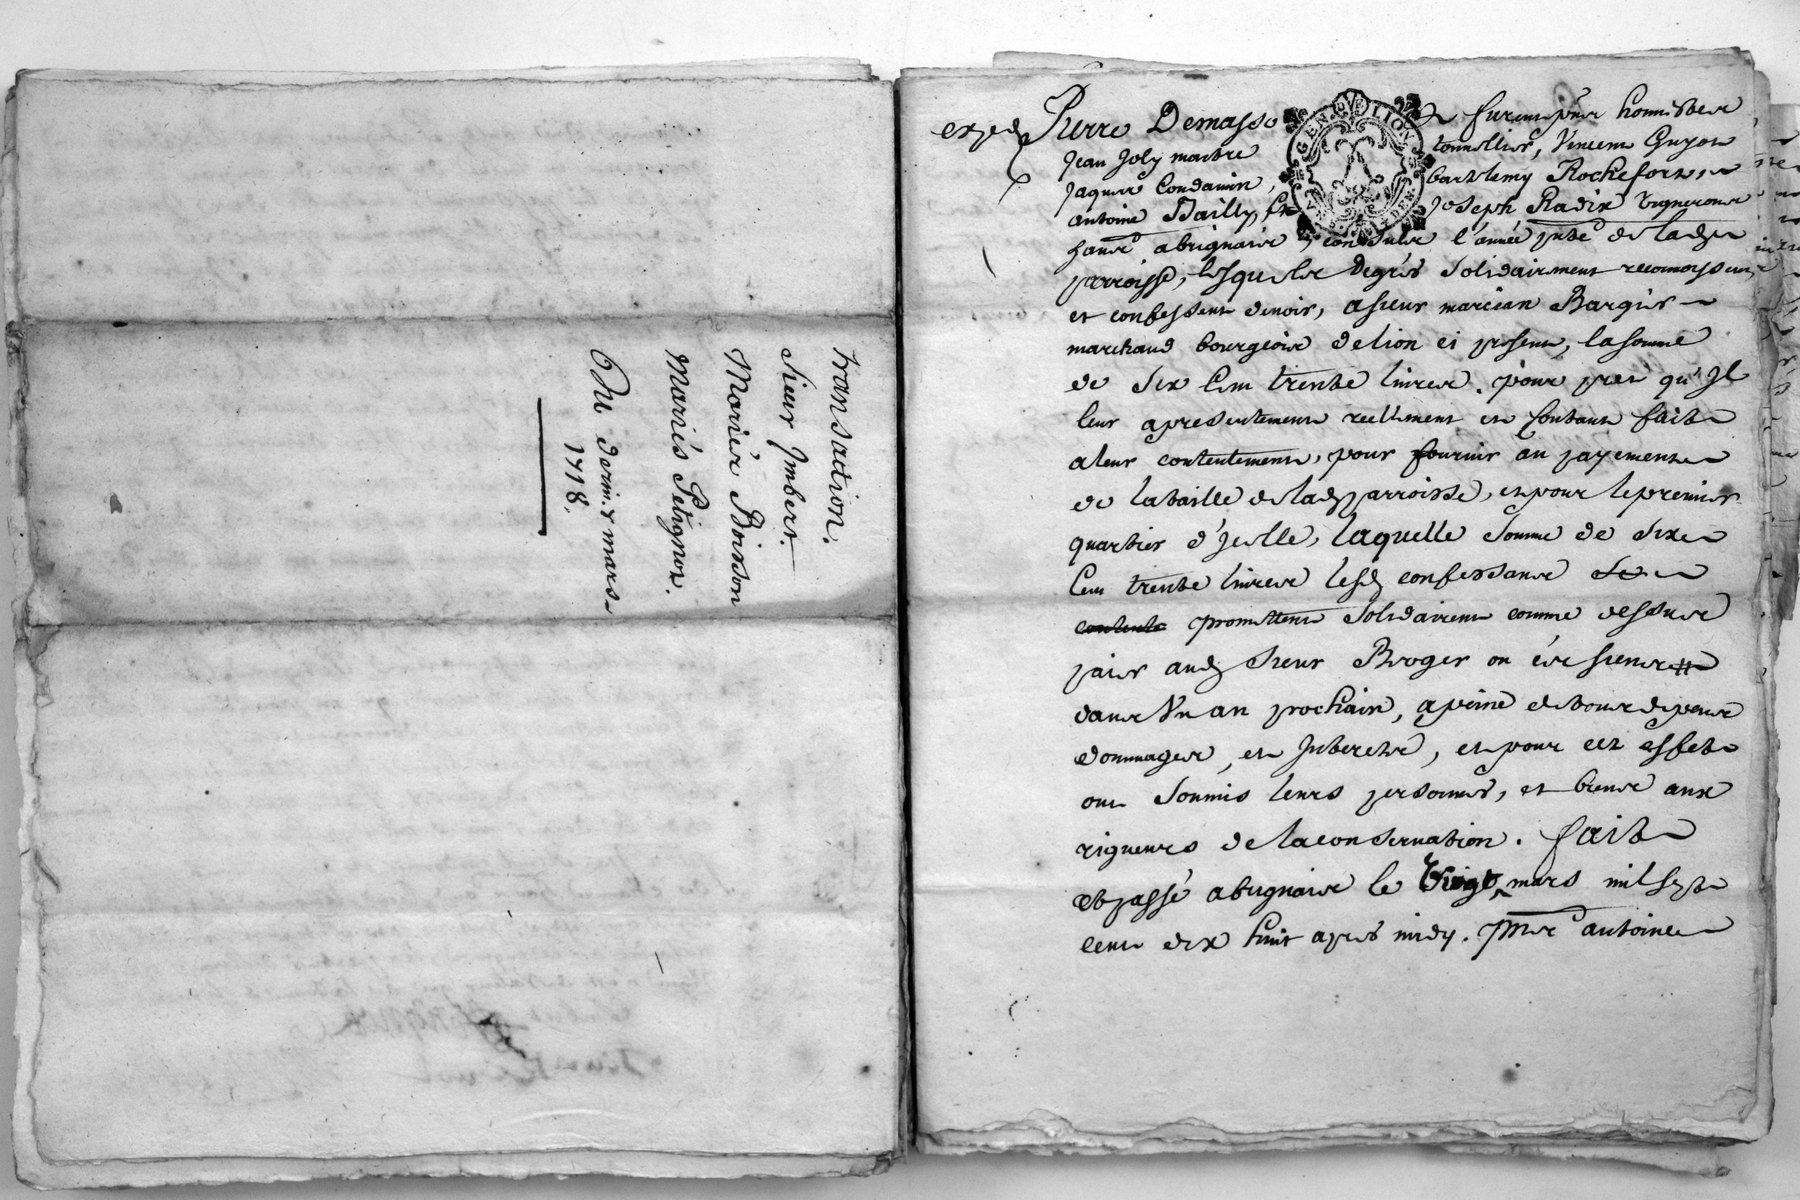 Transaction.
Sieur Imbert.
Mariés Boisson
Mariés Petignox.
Du dernier mars
1718.
exped
Pierre Demasso furent pnts honnestes
Jean Joly maitre tonnellier, Vincent Guyot
Jaques Condamin, bartelemy Rochefort,
antoine Bailly, et Joseph Radix vignerons
hans a brignais, consuls l'année pnte de lad
parroisse, lesquels degrés solidairement reconnoissent
et confessent devoir, a sieur marcian
marchand bourgeois de lion ci present, la somme
de six cent trente livres. pour pret qu'Il
leur a presentement reellement et contant fait
a leur contentement, pour fournir au payement
de la taille de lad parroisse, et pour le premier
quartier d'Icelle, laquelle somme de six
cent trente livres lesd confessans
contente promettent solidairemt comme dessus
paier aud sieur ou és siens
dans Un an prochain, a peine de tous depens
dommages, et Interets, et pour cet effet
ont soumis leurs personnes, et biens aux
rigueurs de la conservation. fait
et passé a brignais le Vingt mars mil sept
cent dix huit aprés midy. pnts antoine
GEN DE LION